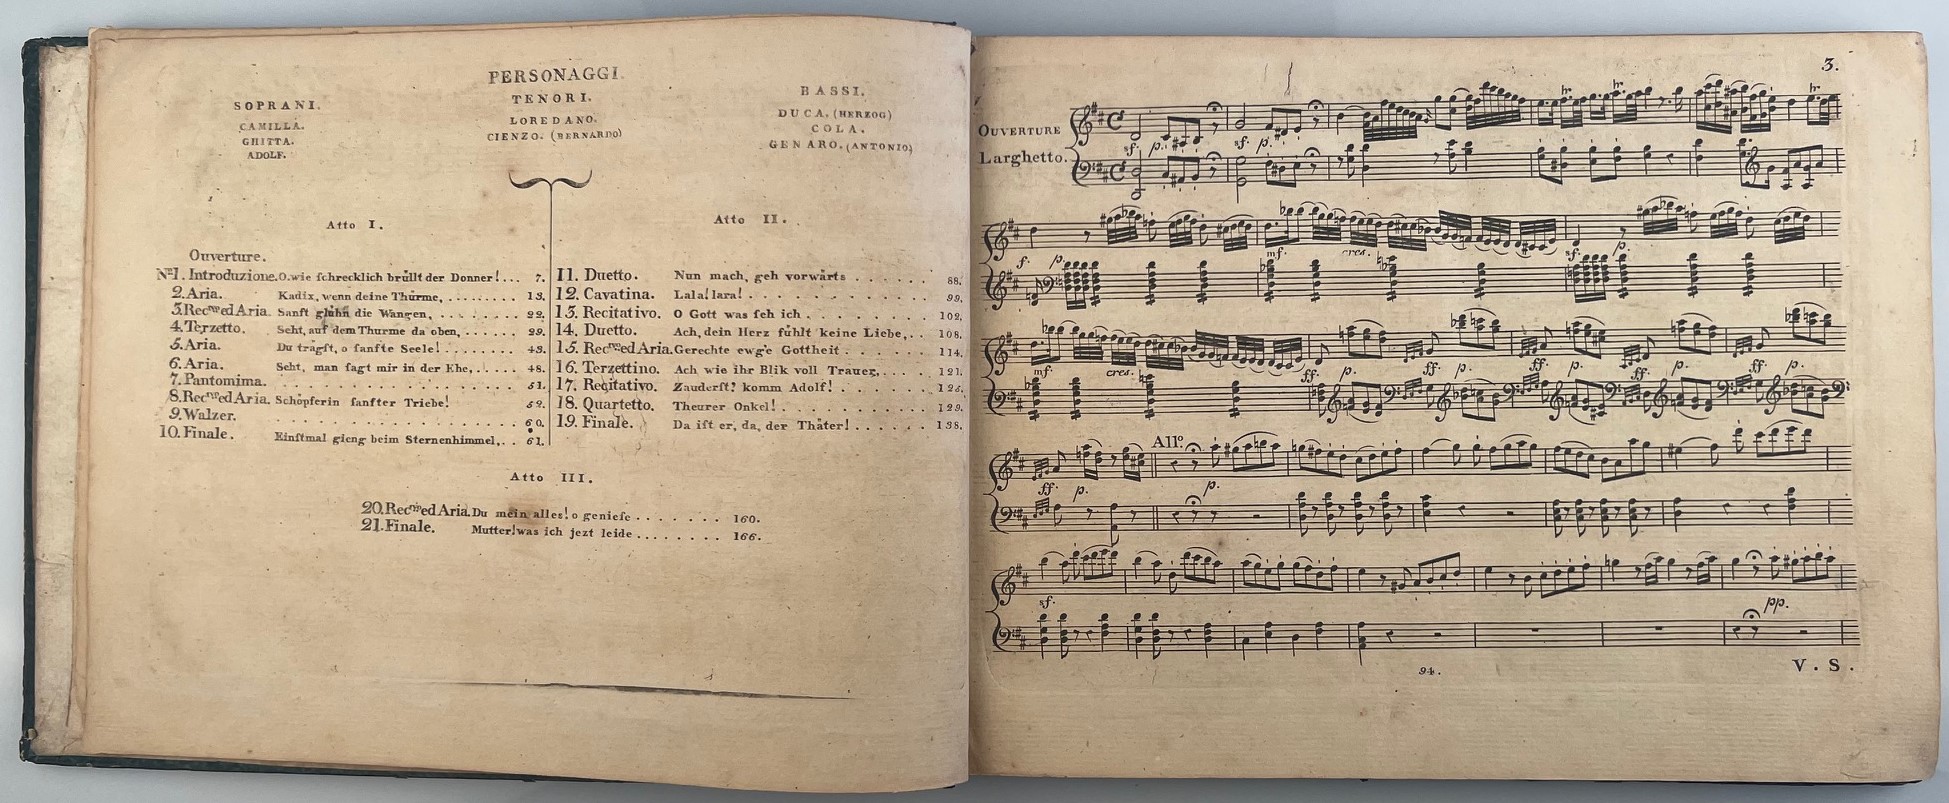 PERSONAGGI.
SOPRANI.
CAMILLA.
GHITTA.
ADOLF.
TENORI.
LOREDANO.
CIENZO. (BERNARDO)
BASSI.
DUCA. (HERZOG)
COLA.
GENARO. (ANTONIO)
Atto I.
Ouverture.
No. 1. Introduzione. O. wie schrecklich brüllt der Donner! ... 7.
2. Aria. Kadix, wenn deine Thürme, ........ 13.
3. Recve ed Aria. Sanft glühn die Wangen, ........ 22.
4. Terzetto. Seht, auf dem Thurme da oben, ...... 29.
5. Aria. Du trägst, o sanfte Seele! ........ 43.
6. Aria. Seht, man sagt mir in der Ehe, ...... 48.
7. Pantomima. ........ 51.
8. Recve ed Aria. Schöpferin sanfter Triebe! ........ 52.
9. Walzer. ........ 60.
10. Finale. Einstmal gieng beim Sternenhimmel, .. 61.
Atto II.
11. Duetto. Nun mach, geh vorwärts ........ 88.
12. Cavatina. Lala! lara! ........ 99.
13. Recitativo. O Gott was seh ich ........ 102.
14. Duetto. Ach, dein Herz fühlt keine Liebe, .. 108.
15. Recve ed Aria. Gerechte ewg'e Gottheit ........ 114.
16. Terzettino. Ach wie ihr Blik voll Trauer, ...... 121.
17. Recitativo. Zauderst? komm Adolf! ........ 125.
18. Quartetto. Theurer Onkel! ........ 129.
19. Finale. Da ist er, da, der Thäter! ........ 138.
Atto III.
20. Recve ed Aria. Du mein alles! o geniese ........ 160.
21. Finale. Mutter! was ich jezt leide ........ 166.
3.
OUVERTURE
Larghetto.
sf. p. sf. p.
f. p. mf. cres. sf. p.
mf. cres. ff. p. ff. p. ff. p. ff. p.
Allo.
ff. p. p.
sf. pp.
94.
V. S.